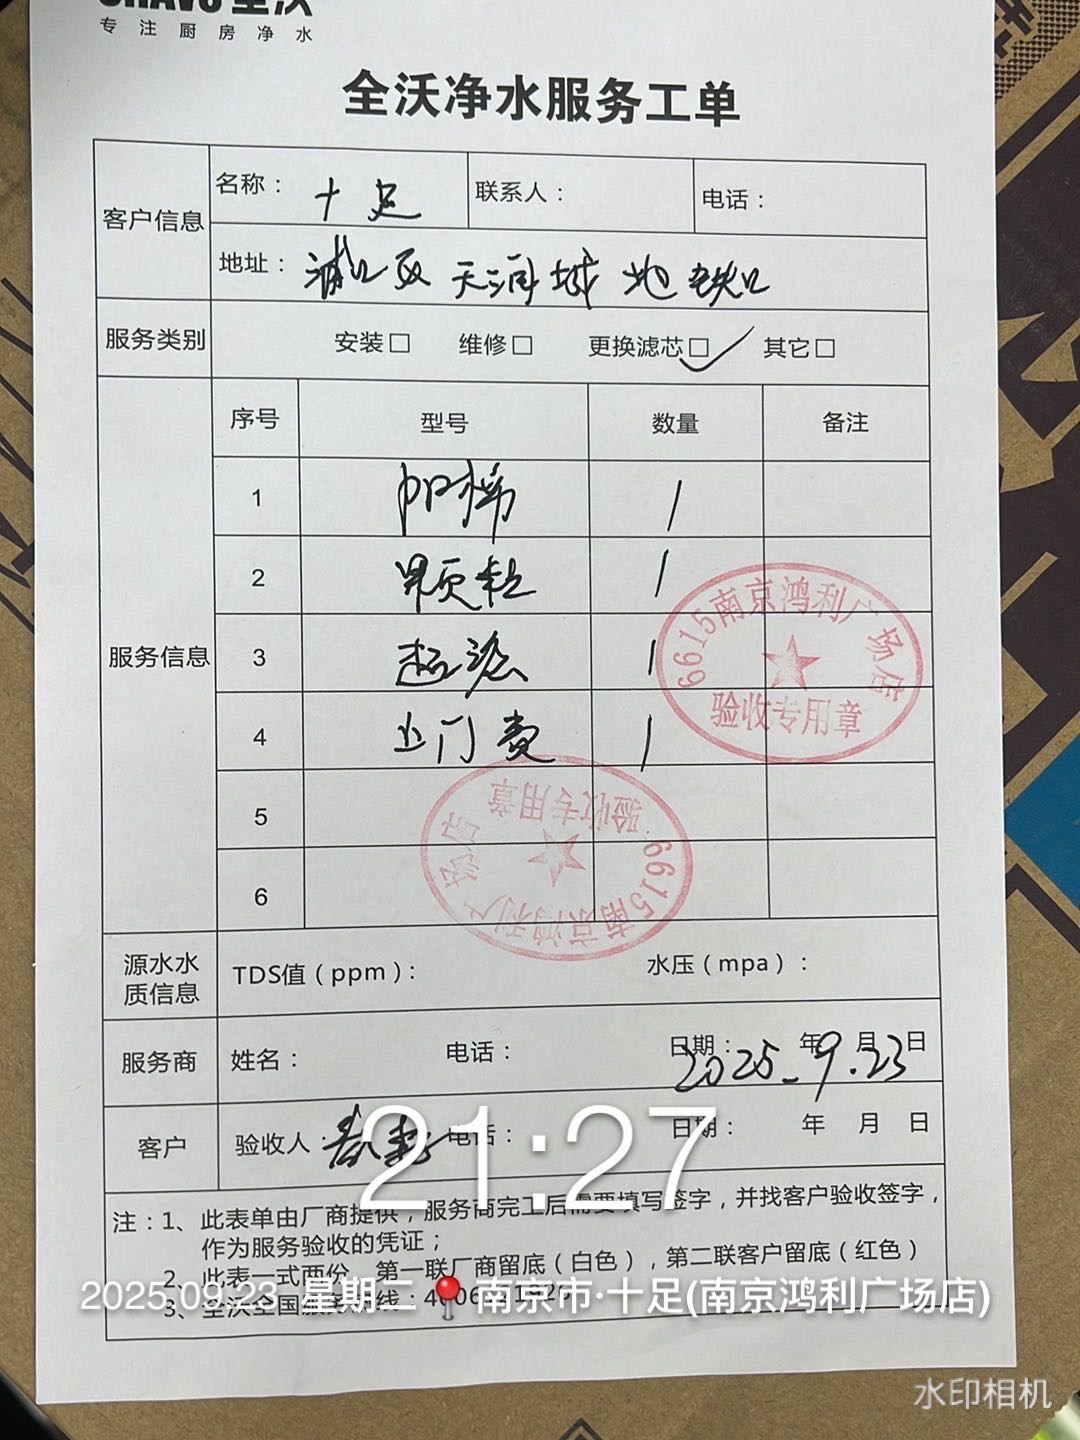 专注厨房净水
全沃净水服务工单
客户信息
名称： 十足 联系人： 电话：
地址： 浦口区 天润城 地铁口
服务类别 安装□ 维修□ 更换滤芯□✓ 其它□
服务信息
序号 型号 数量 备注
1 阳棉 1
2 颗粒 1
3 超滤 1
4 上门费 1
5
6
6615南京鸿利广场店
验收专用章
6615南京鸿利广场店
验收专用章
源水水质信息 TDS值（ppm）： 水压（mpa）：
服务商 姓名： 电话： 日期： 年 月 日
2025.9.23
客户 验收人： 电话： 日期： 年 月 日
21:27
注：1、此表单由厂商提供，服务商完工后需要填写签字，并找客户验收签字，
作为服务验收的凭证；
2、此表一式两份，第一联厂商留底（白色），第二联客户留底（红色）
3、全沃全国服务热线：
2025.09.23 星期二 南京市·十足(南京鸿利广场店)
水印相机